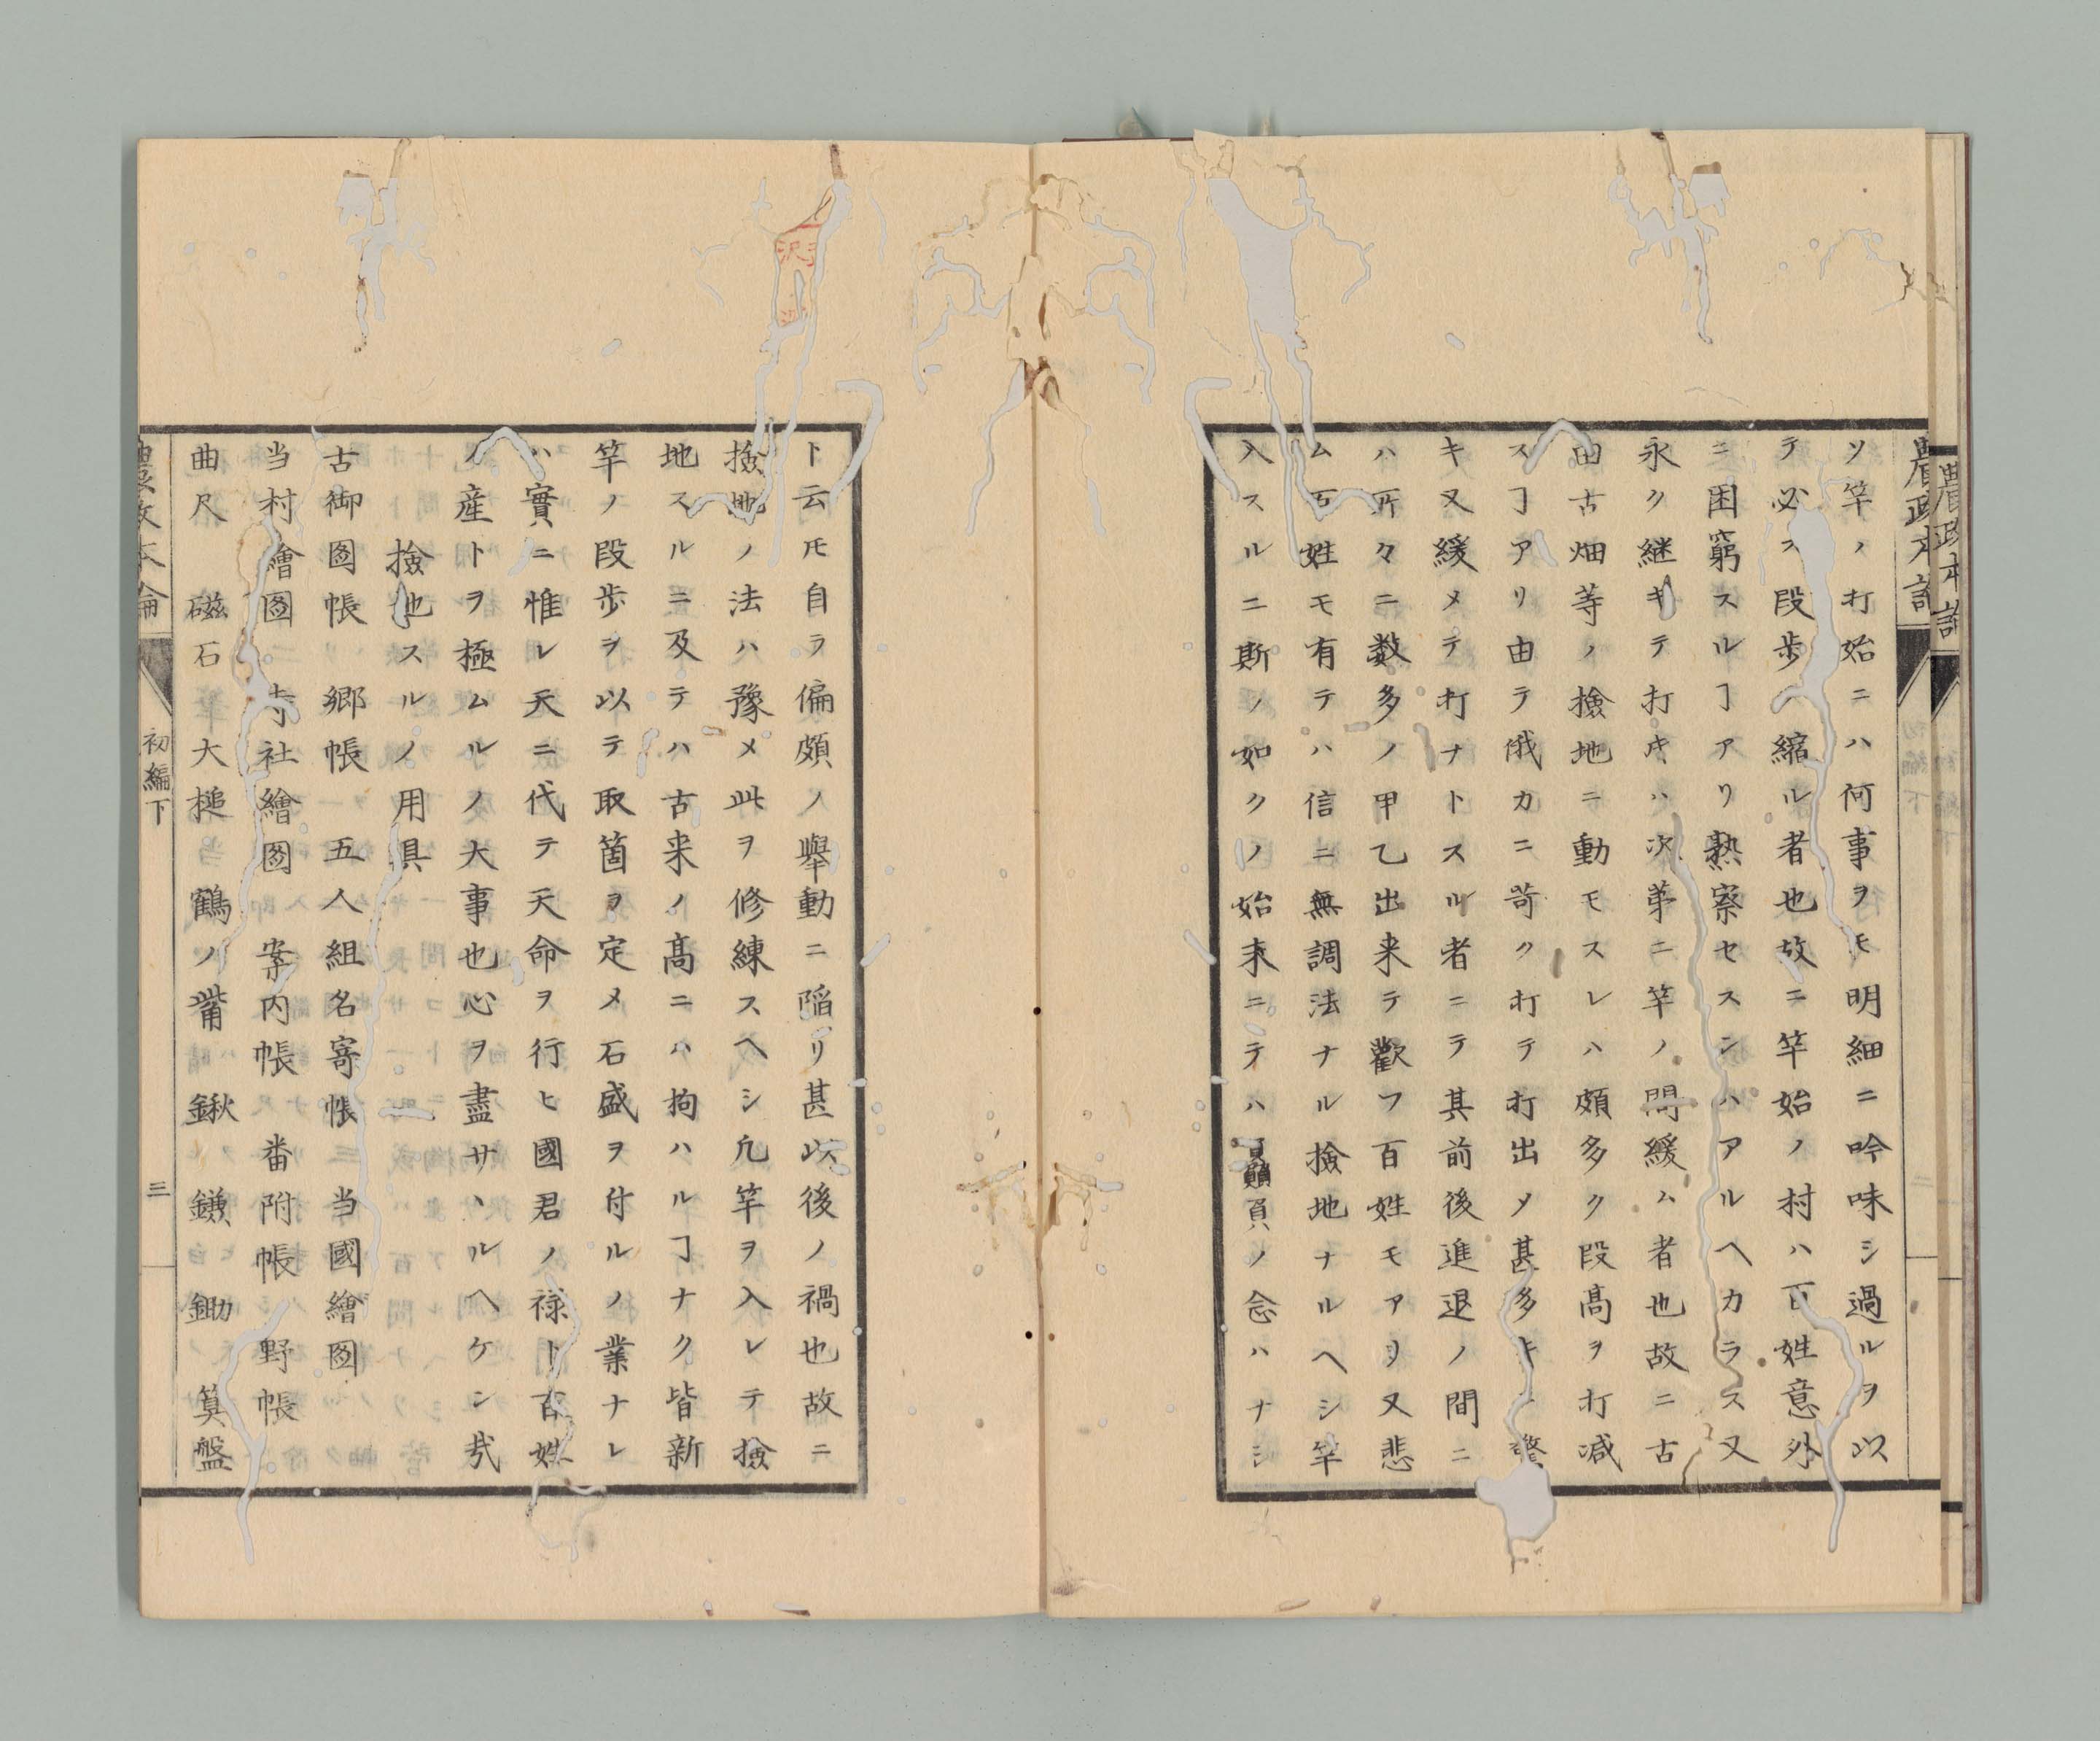 ソ竿ノ打始ニハ何事ヲモ明細ニ吟味シ過ルヲ以
テ必ス段歩ハ縮ル者也故ニ竿始ノ村ハ百姓意外
ニ困窮スルヿアリ熟察セスンハアルヘカラス又
永ク継キテ打キハ次第ニ竿ノ間緩ム者也故ニ古
田古畑等ノ撿地ニ動モスレハ頗多ク段高ヲ打減
スヿアリ由ラ俄カニ苛ク打テ打出メ甚多キ警
キ又緩メテ打ナトスル者ニテ其前後進退ノ間ニ
ハ所々ニ数多ノ甲乙出来テ歡フ百姓モアリ又悲
ム百姓モ有テハ信ニ無調法ナル撿地ナルヘシ竿
入スルニ斯ノ如クノ始末ニテハ贔負ノ念ハナシ
ト云𪜈自ラ偏頗ノ舉動ニ陥リ甚以後ノ禍也故ニ
撿地ノ法ハ豫メ此ヲ修練スヘシ凡竿ヲ入レテ撿
地スルニ及テハ古来ノ髙ニハ拘ハルヿナク皆新
竿ノ段歩ヲ以テ取箇ヲ定メ石盛ヲ付ルノ業ナレ
ハ實ニ惟レ天ニ代テ天命ヲ行ヒ國君ノ禄ト百姓
ノ産トヲ極ムルノ大事也心ヲ盡サヽルヘケン哉
撿地スルノ用具
古御圖帳 郷帳 五人組名寄帳 当國繪圖
当村繪圖 寺社繪圖 案内帳 畨附帳 野帳
曲尺 磁石 大槌 鶴ノ觜 鍬 鎌 鋤 算盤
農政本論 初編下 三